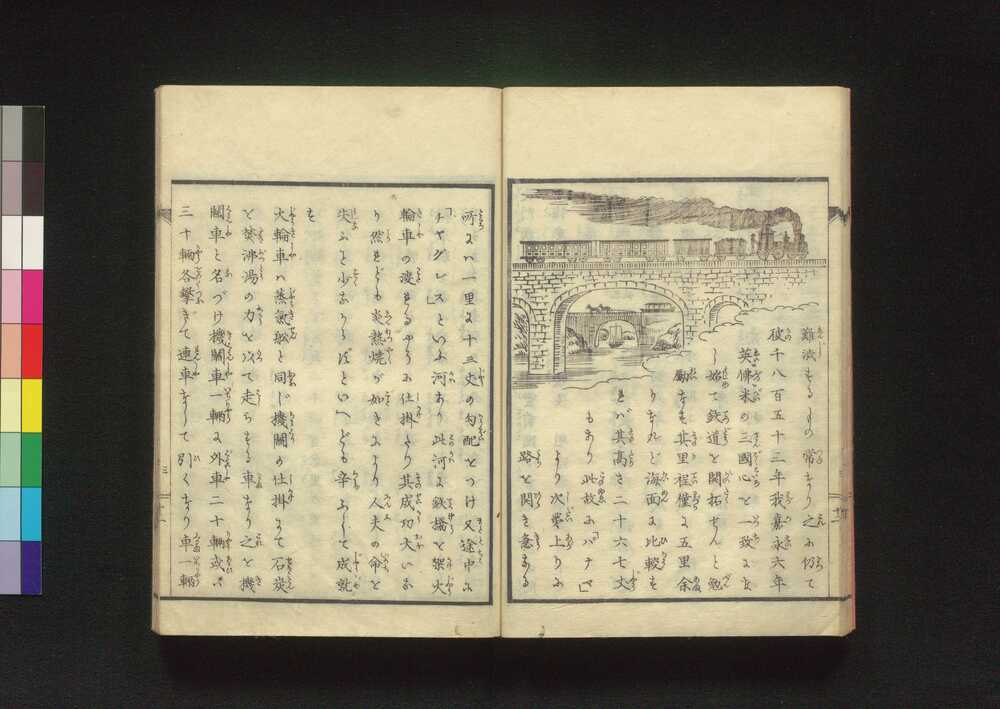 難渋するもの常なり之に仍て
彼千八百五十三年我嘉永六年
英佛米の三國心を一致にな
し始て鉄道を開拓せんと勉
勵なすも其里程僅に五里余
りなれど海面に比較す
れバ其高さ二十六七丈
もあり此故にパナマ
より次第上りに
路を開き急なる
所にハ一里に十三丈の勾配をつけ又途中に
「チヤグレス」といふ河あり此河に鉄橋を架火
輪車の渡さるやうに仕掛たり其成功大いな
り然れども炎熱焼が如きにより人夫の命を
失ふこと少なからずといへども辛ふじて成就
を
火輪車ハ蒸氣舩と同じ機關の仕掛にて石炭
を焚沸湯の力を以て走らする車なり之を機
關車と名づけ機關車一輛に外車二十輛或ハ
三十輛各繋ぎて連車なして引くなり車一輛